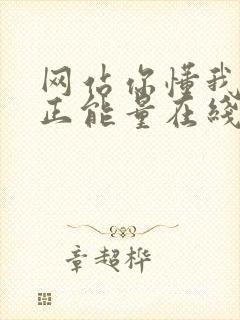 网站你懂我
正能量在线
章超桦